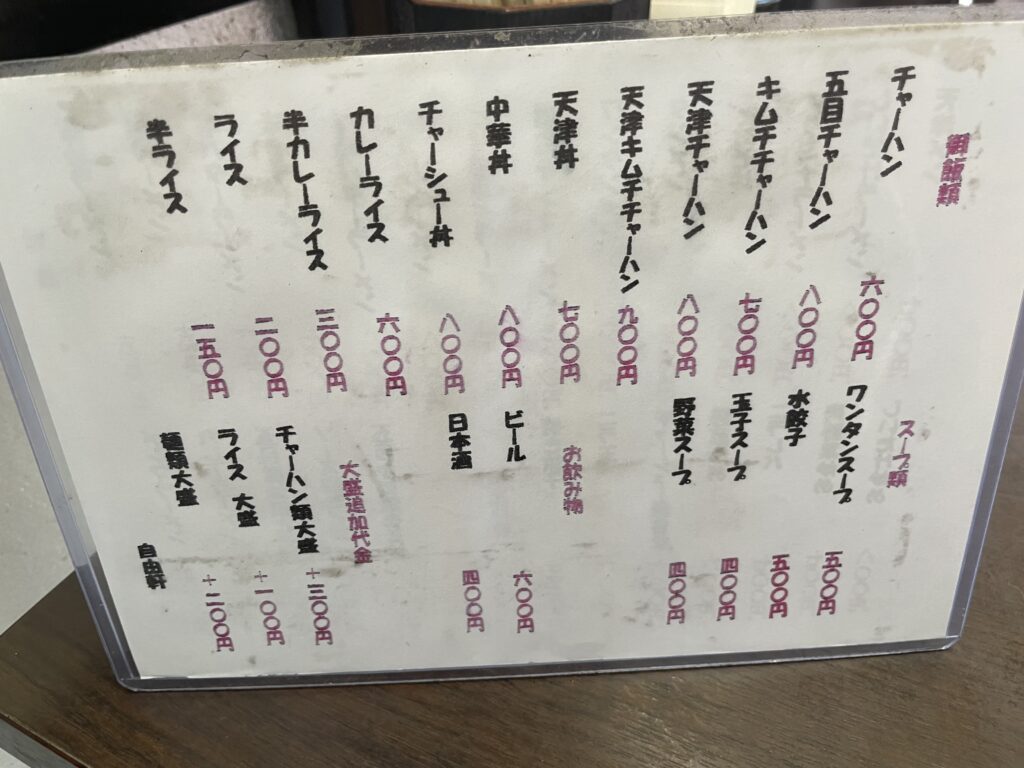 御飯類
チャーハン 六〇〇円
五目チャーハン 八〇〇円
キムチチャーハン 七〇〇円
天津チャーハン 八〇〇円
天津キムチチャーハン 九〇〇円
天津丼 七〇〇円
中華丼 八〇〇円
チャーシュー丼 八〇〇円
カレーライス 六〇〇円
半カレーライス 三〇〇円
ライス 二〇〇円
半ライス 一五〇円
スープ類
ワンタンスープ 五〇〇円
水餃子 五〇〇円
玉子スープ 四〇〇円
野菜スープ 四〇〇円
お飲み物
ビール 六〇〇円
日本酒 四〇〇円
大盛追加代金
チャーハン類大盛 +三〇〇円
ライス 大盛 +一〇〇円
麺類大盛 +二〇〇円
自由軒